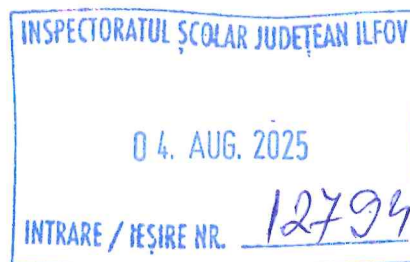 INSPECTORATUL ȘCOLAR JUDEȚEAN ILFOV
04. AUG. 2025
INTRARE / IEȘIRE NR. 12794